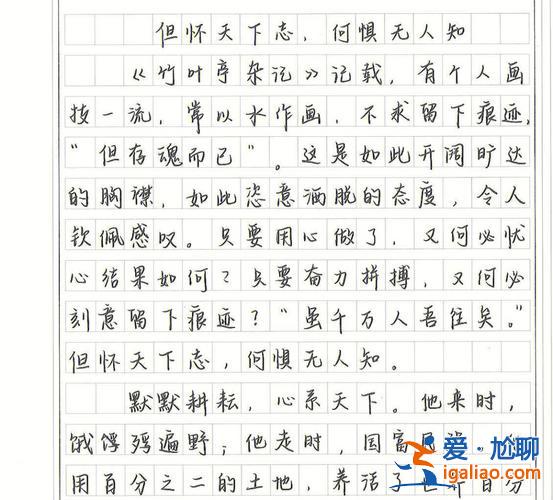 但怀天下志,何惧无人知
《竹叶亭杂记》记载,有个人画
技一流,常以水作画,不求留下痕迹,
"但存魂而已"。这是如此开阔旷达
的胸襟,如此恣意洒脱的态度,令人
钦佩感叹。只要用心做了,又何必忧
心结果如何?只要奋力拼搏,又何必
刻意留下痕迹?"虽千万人吾往矣。"
但怀天下志,何惧无人知。
默默耕耘,心系天下。他来时,
饿殍遍野;他走时,国富
用百分之二的土地,养活了
爱·尬聊
igaliao.com